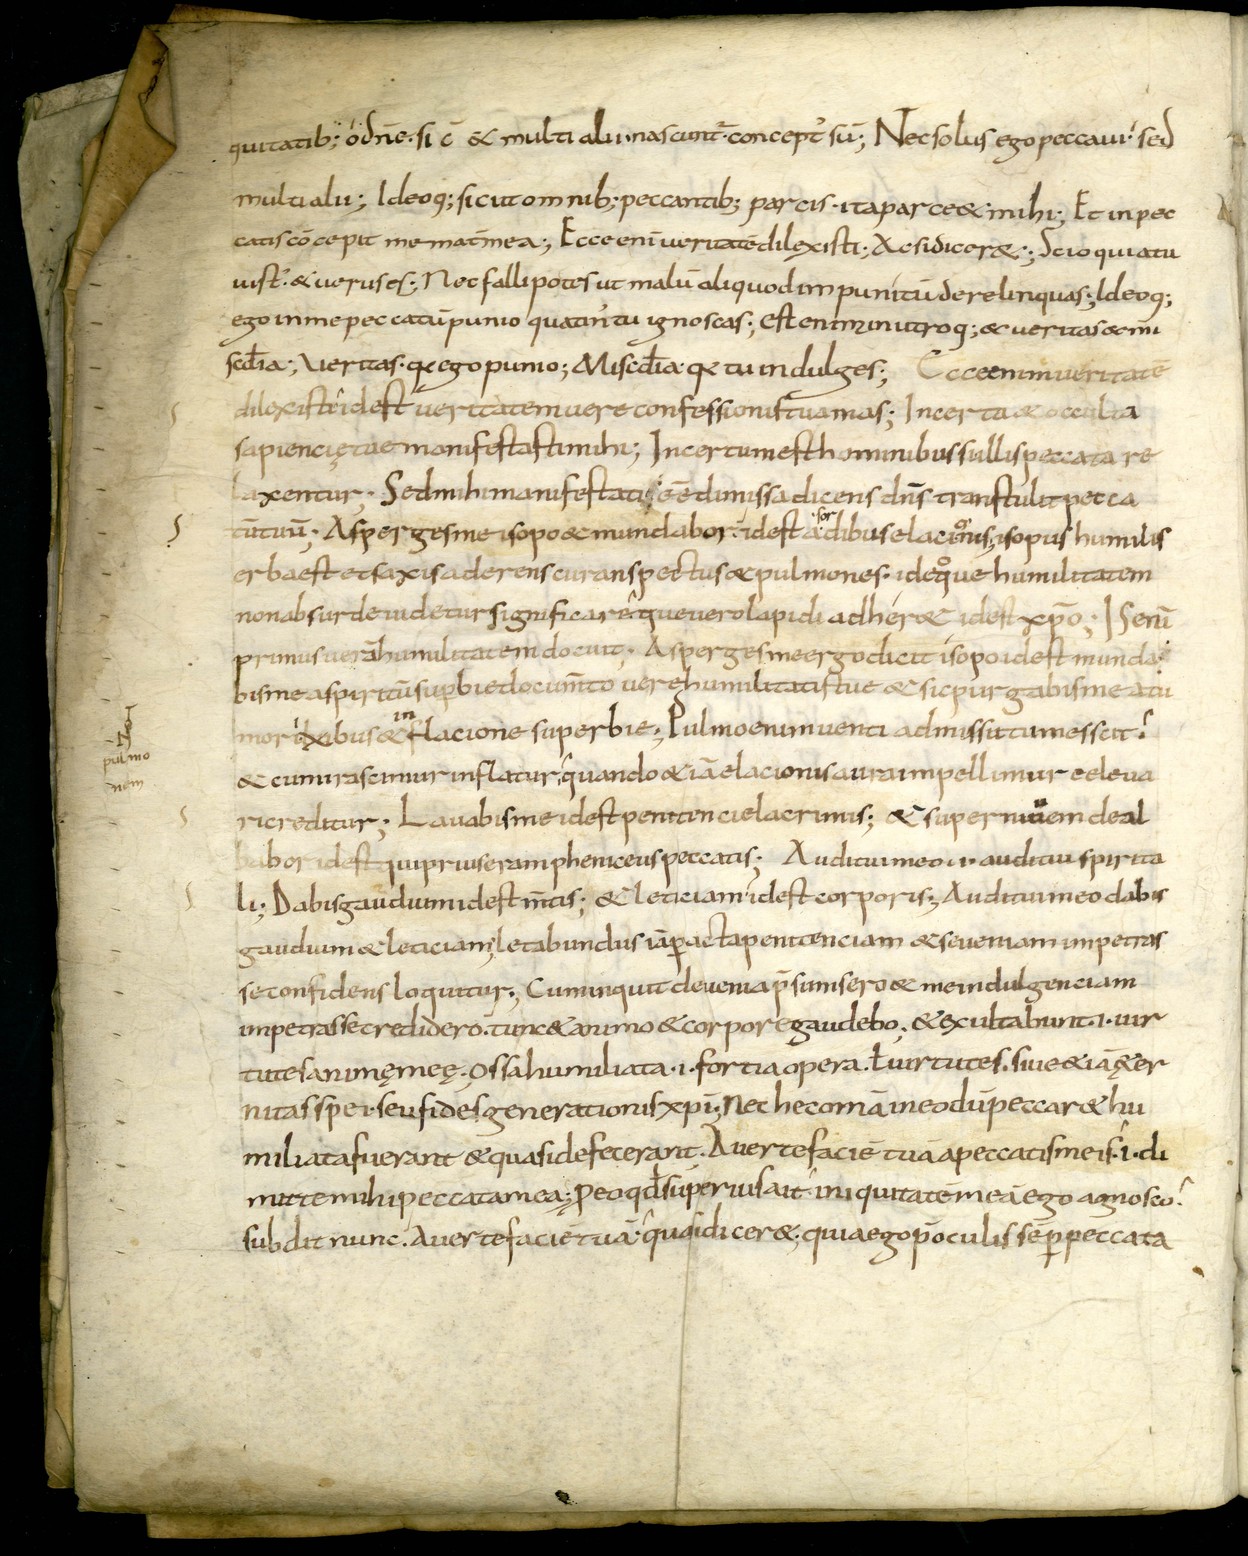 quitatib; o dn̄e · si c̄ & multi alii · nascunt̄ · concept᾽ sū; Nec solus ego peccaui · sed
multi alii; Ideoq; sicut omnib; peccantib; parcis · ita parce & mihi; Et in pec
catis cōcepit me mat̄ mea; Ecce enī veritatē dilexisti; Ac si dicer&; Scio quia tu
iust᾽ · & uerus es; Nec falli potes ut malū aliquod impunitū derelinquas; Ideoq;
ego in me peccatū punio quatin᾽ tu ignoscas; Est enim in utroq; & veritas & mi
sc̄dia; Veritas · qƺ ego punio; Misc̄dia · qƺ tu indulges; Ecce enim ueritatē
dilexisti · id est veritatem vere confessionis tu amas; Incerta & occulta
sapiencię tue manifestasti mihi; Incertum est hominibus si illis peccata re
laxentur; Sed mihi manifestati eē dimissa dicens dn̄s transtulit pecca
tū tuū; Asperges me isopo & mundabor · id est a sordibus elacionis; isopus humilis
erba est et saxis aderens curans pectus & pulmones · ideoque humilitatem
non absurde uidetur significare que vero lapidi adher& id est xp̄o; Is enī
primus verā humilitatem docuit; Asperges me ergo dicit isopo id est munda
bis me a spiritū supbie documto vere humilitatis tue & sic purgabis me a tu
moribus & inflacione superbie; Pulmo enim uenti admissu tumescit ·
& cum irascimur inflatur · quando & iā elacionis aura impellimur e eleua
ri creditur; Lauabis me id est penitencie lacrimis; & super niuem deal
babor id est qui prius eram pheniceus peccatis; Auditui meo · i · auditui spirita
li; Dabis gaudium id est m̄tis; & leticiam id est corporis; Auditui meo dabis
gaudium & leticiam; letabundus iā pacta penitenciam & se ueniam impetras
se confidens loquitur; Cum inquit de uenia p̄sumsero & me indulgenciam
impetrasse credidero · tunc & animo & corpore gaudebo; & exultabunt · i · uir
tutes animę meę · ossa humiliata · i · fortia opera · ł uirtutes · siue & iā & er
nitas spei · seu fides generationis xp̄i; Nec hec omā in eo dū peccar& hu
miliata fuerant & quasi defecerant · Auerte faciē tuā a peccatis meis · i · di
mitte mihi peccata mea; p eo qd̄ superius ait · iniquitatē meā ego agnosco ·
subdit nunc · Auerte faciē tuā · quasi dicer&; quia ego p̄ oculis sēp peccata
pulmo
nem